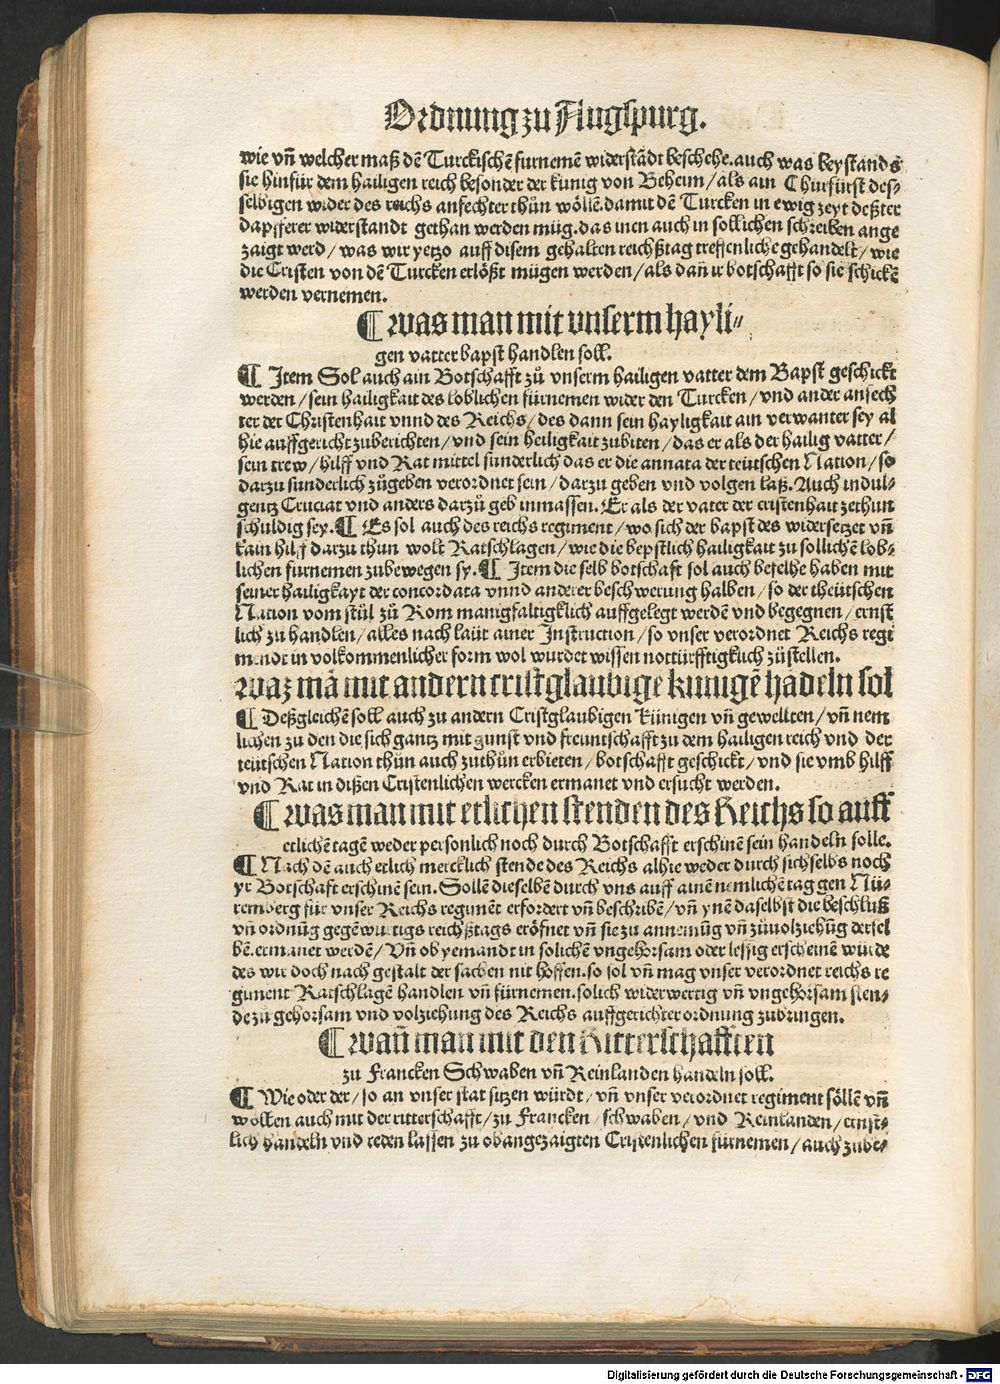 Ordnung zu Augspurg.
wie vñ welcher maß dẽ Turckischẽ furnemẽ widerstãdt beschehe. auch was beystands
sie hinfür dem hailigen reich besonder der kunig von Beheim / als ain Churfürst des⸗
selbigen wider des reichs anfechter thůn wöllẽ. damit dẽ Turcken in ewig zeyt deßter
dapfferer widerstandt gethan werden müg. das inen auch in sollichen schreiben ange
zaigt werd / was wir yetzo auff disem gehalten reichßtag treffenliche gehandelt / wie
die Cristen von dẽ Turcken erlößt mügen werden / als dañ ir botschafft so sie schickẽ
werden vernemen.
¶ was man mit vnserm hayli⸗
gen vatter bapst handlen soll.
¶ Item Sol auch ain Botschafft zů vnserm hailigen vatter dem Bapst geschickt
werden / sein hailigkait des loblichen fürnemen wider den Turcken / vnd ander anfech
ter der Christenhait vnnd des Reichs / des dann sein hayligkait ain verwanter sey al
hie auffgericht zuberichten / vnd sein heiligkait zubiten / das er als der hailig vatter /
sein trew / hilff vnd Rat mittel sunderlich das er die annata der teütschen Nation / so
darzu sunderlich zůgeben verordnet sein / darzu geben vnd volgen laß. Auch indul⸗
gentz Cruciat vnd anders darzů geb inmassen. Er als der vater der cristenhait zethun
schuldig sey. ¶ Es sol auch des reichs regiment / wo sich der bapst des widersetzet vñ
kain hilff darzu thun wolt Ratschlagen / wie die bepstlich hailigkait zu sollichẽ lob⸗
lichen furnemen zubewegen sy. ¶ Item die selb botschaft sol auch befelhe haben mit
seiner hailigkayt der concordata vnnd anderer beschwerung halben / so der theütschen
Nation vom stůl zů Rom manigfaltigklich auffgelegt werdẽ vnd begegnen / ernst
lich zu handlen / alles nach laüt ainer Instruction / so vnser verordnet Reichs regi
mendt in volkommenlicher form wol wurdet wissen nottürfftigklich zůstellen.
waz mã mit andern cristglaubige kunigẽ hãdeln sol
¶ Deßgleichẽ soll auch zu andern Cristglaubigen Künigen vñ gewellten / vñ nem
lichen zu den die sich gantz mit gunst vnd freuntschafft zu dem hailigen reich vnd der
teütschen Nation thůn auch zuthůn erbieten / botschafft geschickt / vnd sie vmb hilff
vnd Rat in dißen Cristenlichen wercken ermanet vnd ersucht werden.
¶ was man mit etlichen stenden des Reichs so auff
etlichẽ tagẽ weder personlich noch durch Botschafft erschinẽ sein handeln solle.
¶ Nach dẽ auch etlich mercklich stende des Reichs alhie weder durch sich selbs noch
yr Botschaft erschinẽ sein. Sollẽ dieselbẽ durch vns auff ainẽ nemlichẽ tag gen Nü⸗
remberg für vnser Reichs regimẽt erfordert vñ beschribẽ / vñ ynẽ daselbst die beschluß
vñ ordnũg gegẽwürtigs reichßtags eröfnet vñ sie zu annemũg vñ zůuolziehũg dersel
bẽ. ermanet werdẽ / Vñ ob yemandt in solichẽ vngehorsam oder lessig erscheinẽ würde
des wir doch nach gestalt der sachen nit hoffen. so sol vñ mag vnser verordnet reichs re
giment Ratschlagẽ handlen vñ fürnemen. solich widerwertig vñ vngehorsam sten⸗
de zů gehorsam vnd volziehung des Reichs auffgerichter ordnung zubringen.
¶ wañ man mit den Ritterschafften
zu Francken Schwaben vñ Reinlanden handeln soll.
¶ Wie oder der / so an vnser stat sitzen würdt / vñ vnser verordnet regiment söllẽ vñ
wöllen auch mit der ritterschafft / zu Francken / schwaben / vnd Reinlanden / ernst⸗
lich handeln vnd reden lassen zu obangezaigten Cristenlichen fürnemen / auch zube⸗
Digitalisierung gefördert durch die Deutsche Forschungsgemeinschaft - DFG